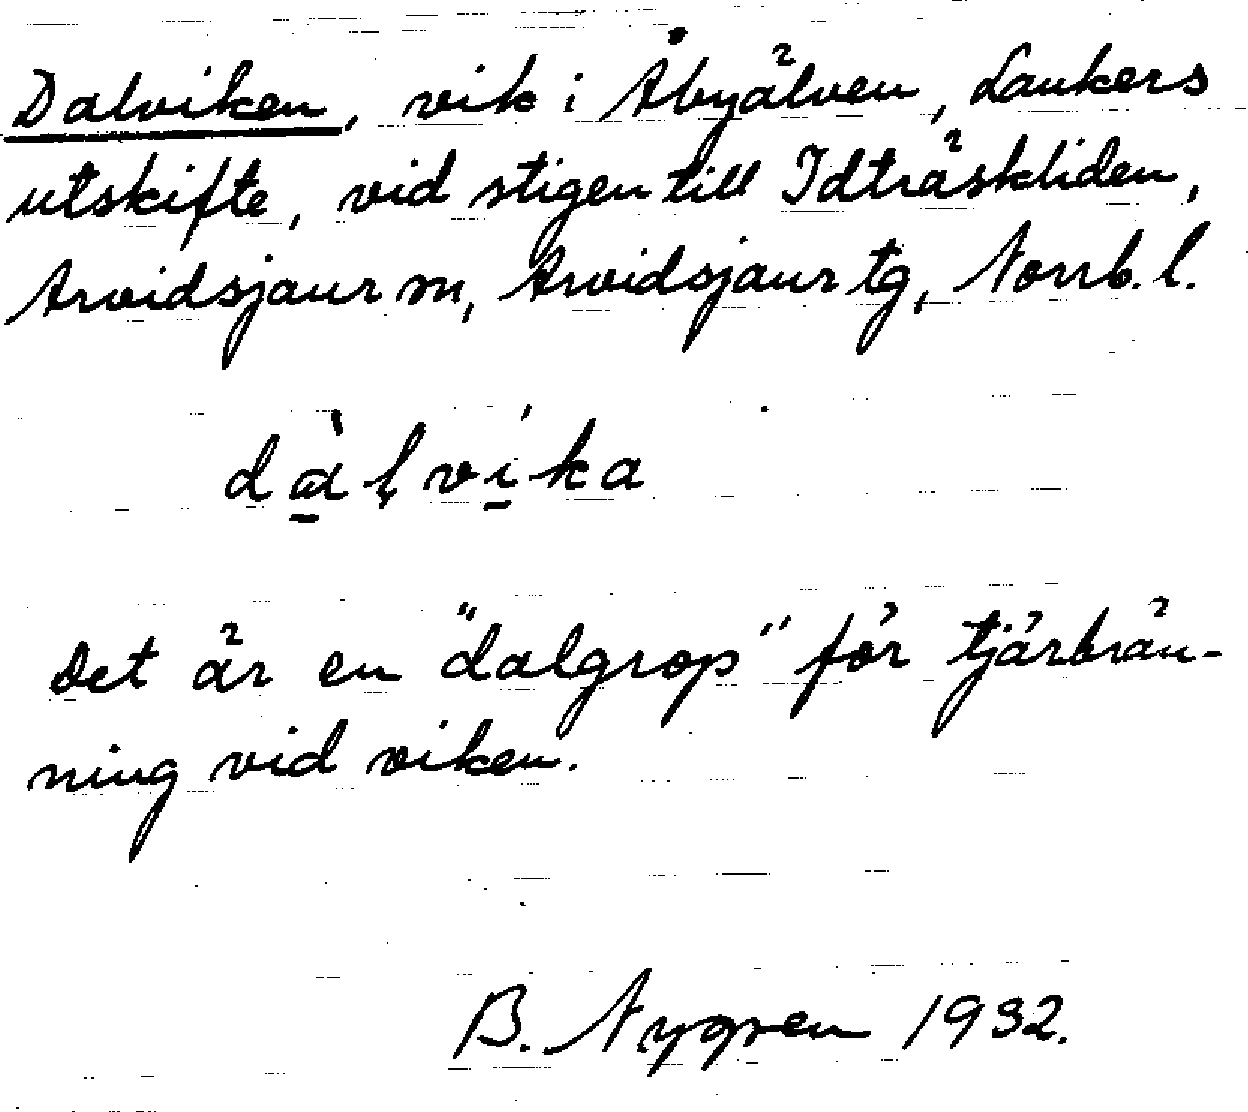 Dalviken, vik i Åbyälven, Laukers
utskifte, vid stigen till Idträskliden,
Arvidsjaur sn, Arvidsjaur tg, Norrb. l.
dàḷvíka
Det är en "dalgrop" för tjärbrän-
ning vid viken.
B. Nygren 1932.